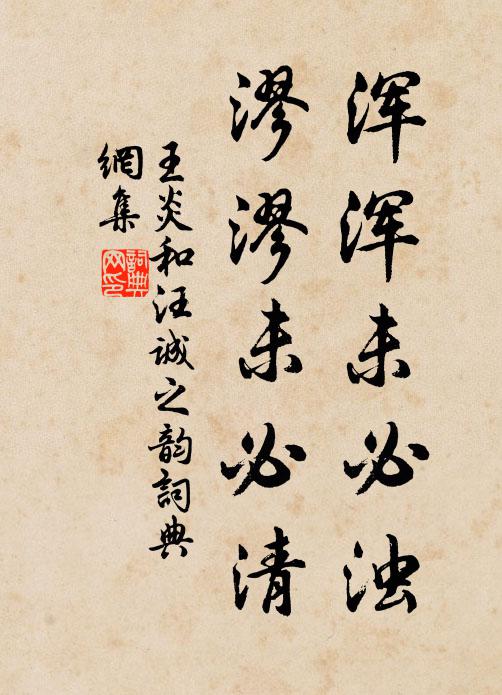 浑浑未必浊
漻漻未必清
王炎和汪诚之韵词典
網集
詞典网印